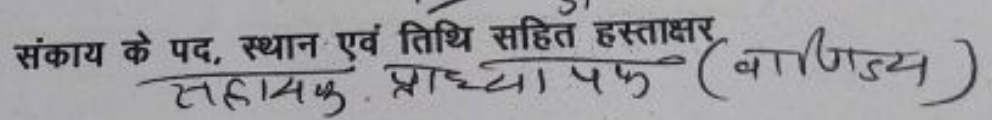 संकाय के पद, स्थान एवं तिथि सहित हस्ताक्षर
सहायक प्राध्यापक (वाणिज्य)